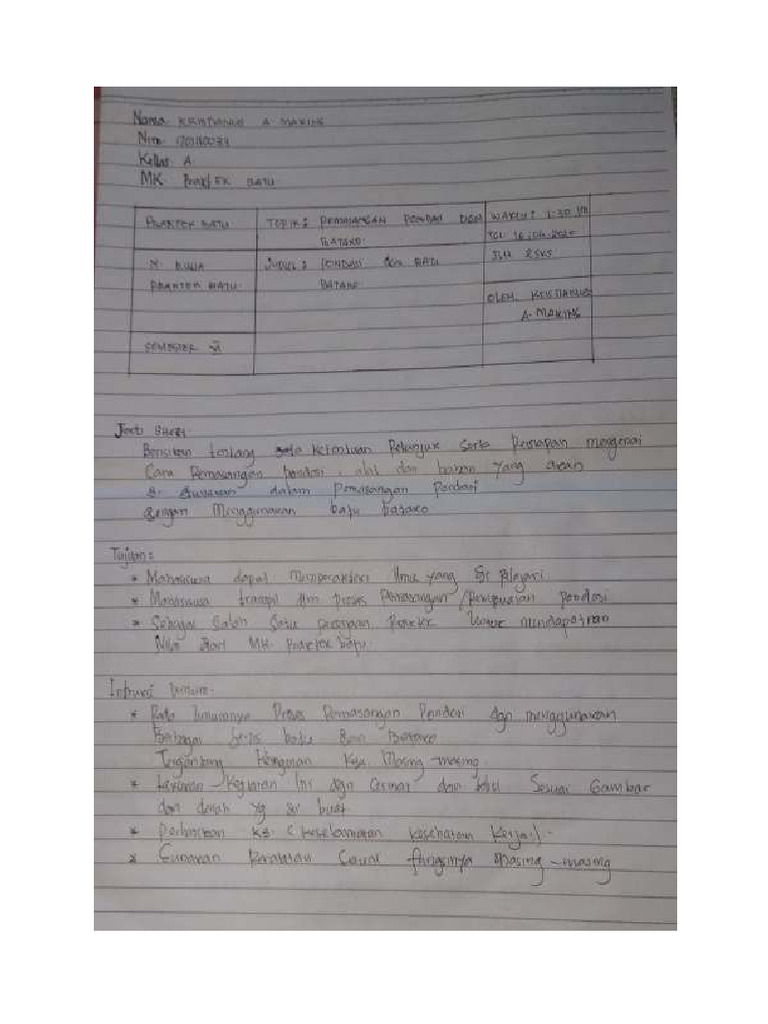 Nama KRISTIANUS A MAKING
Nim.
Kelas A
MK Praktek BATU
PRAKTEK BATU
TOPIK: PEMASANGAN PONDASI DGN
BATAKO
WAKTU:
TGL 16
JLH 2SKS
PRAKTEK BATU
JUDUL: PONDASI dari BATU
BATAKO
OLEH. KRISTIANUS
A. MAKING
SEMESTER VI
Job SHEET
Berisikan tentang Ketentuan Petunjuk serta Persiapan mengenai
Cara Pemasangan pondasi, alat dan bahan yang akan
di gunakan dalam pemasangan Pondasi
dengan Menggunakan batu batako
Tujuan:
* Mahasiswa dapat Memperaktekan Ilmu yang di Plajari
* Mahasiswa trampil dlm proses Pemasangan/Pembuatan pondasi
* Sebagai Salah Satu Praktek Untuk mendapatkan
Nilai dari MK. Praktek batu.
Intruksi Umum.
* Pada Umumnya Proses Pemasangan Pondasi dgn menggunakan
Berbagai Jenis batu dan Batako
Tergantung Keinginan Kita Masing-masing
* Lakukan Kegiatan Ini dgn Cermat dan Sesuai Gambar
dan denah yg di buat
* Perhatikan K3. (Keselamatan Kesehatan Kerja)-
* Gunakan Peralatan Sesuai fungsinya Masing-masing